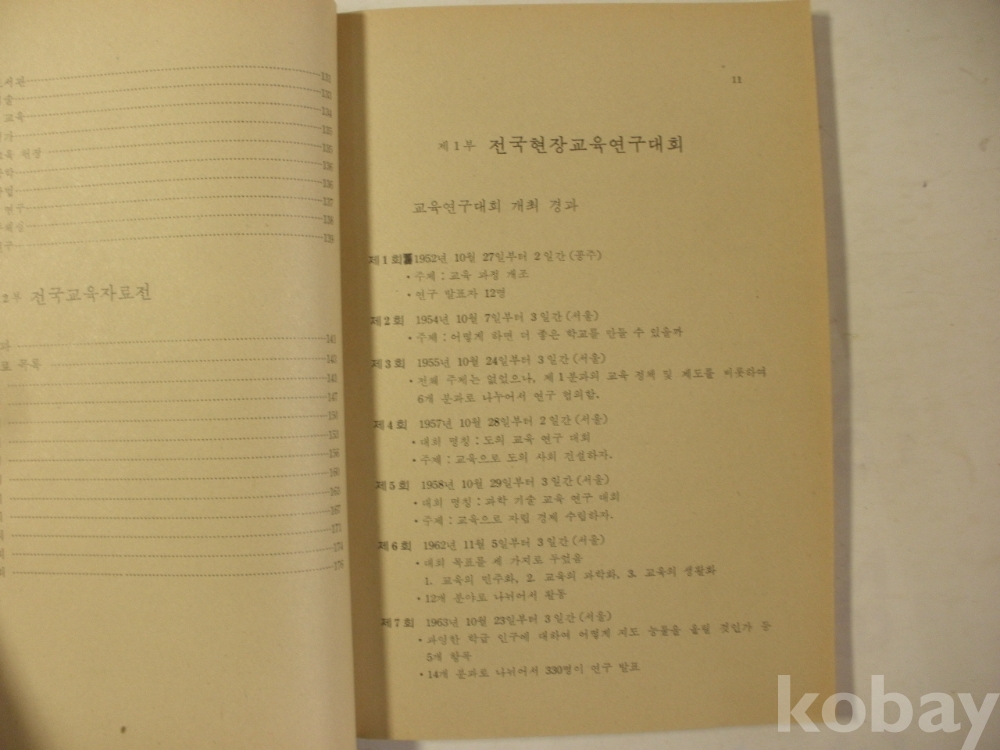 131
133
교육 134
135
교육 현장 135
136
136
연구 137
138
139
2부 전국교육자료전
141
목록 143
143
147
150
153
156
160
163
167
171
174
176
11
제1부 전국현장교육연구대회
교육연구대회 개최 경과
제1회 1952년 10월 27일부터 2일간(공주)
• 주제 : 교육 과정 개조
• 연구 발표자 12명
제2회 1954년 10월 7일부터 3일간(서울)
• 주제 : 어떻게 하면 더 좋은 학교를 만들 수 있을까
제3회 1955년 10월 24일부터 3일간(서울)
• 전체 주제는 없었으나, 제1분과의 교육 정책 및 제도를 비롯하여
6개 분과로 나누어서 연구 협의함.
제4회 1957년 10월 28일부터 2일간(서울)
• 대회 명칭 : 도의 교육 연구 대회
• 주제 : 교육으로 도의 사회 건설하자.
제5회 1958년 10월 29일부터 3일간(서울)
• 대회 명칭 : 과학 기술 교육 연구 대회
• 주제 : 교육으로 자립 경제 수립하자.
제6회 1962년 11월 5일부터 3일간(서울)
• 대회 목표를 세 가지로 두었음
1. 교육의 민주화, 2. 교육의 과학화, 3. 교육의 생활화
• 12개 분야로 나뉘어서 활동
제7회 1963년 10월 23일부터 3일간(서울)
• 과잉한 학급 인구에 대하여 어떻게 지도 능률을 올릴 것인가 등
5개 항목
• 14개 분과로 나뉘어서 330명이 연구 발표
kobay